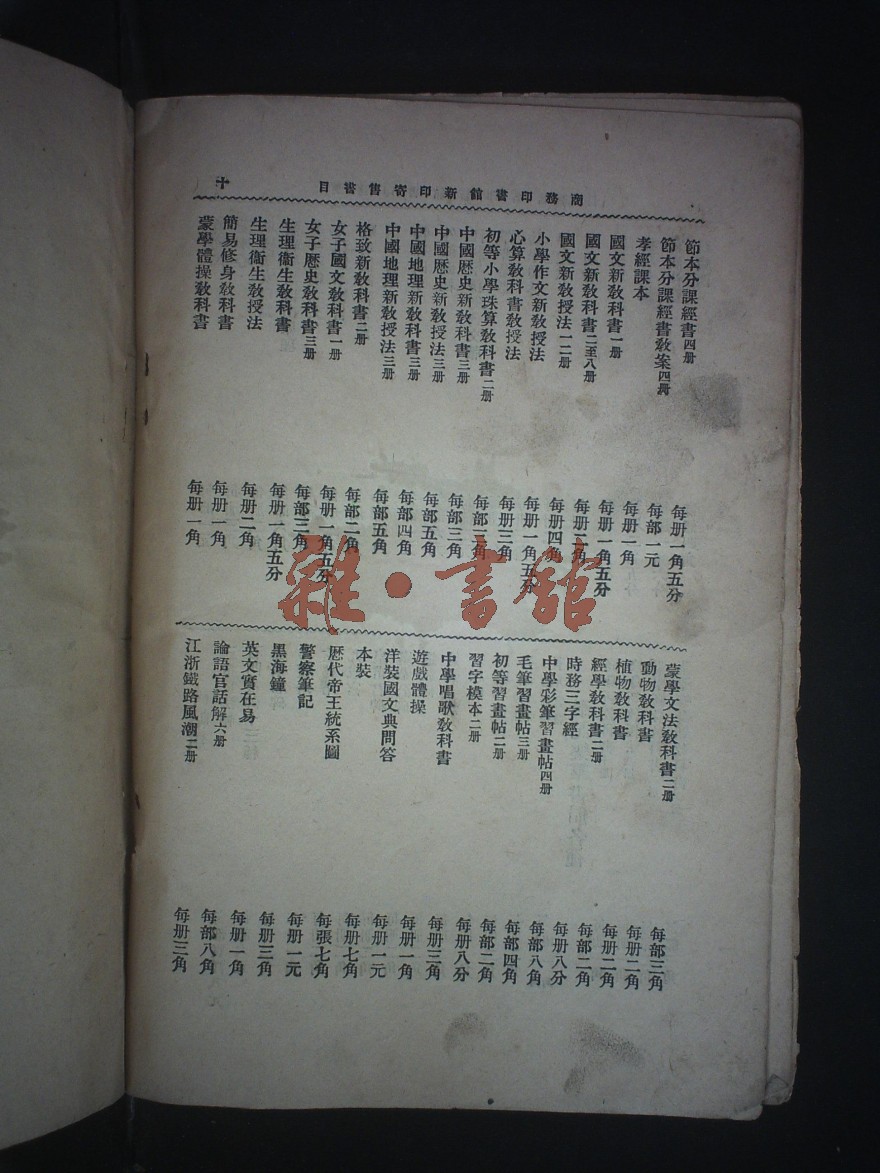 商務印書館新印寄售書目
十
節本分課經書四册 每册一角五分
節本分課經書敎案四册 每部一元
孝經課本 每册一角
國文新敎科書一册 每册一角五分
國文新敎科書二至八册 每册二角
國文新敎授法一二册 每册四角
小學作文新敎授法 每册一角五分
心算敎科書敎授法 每册三角
初等小學珠算敎科書二册 每部二角
中國歷史新敎科書三册 每部三角
中國歷史新敎授法三册 每部五角
中國地理新敎科書三册 每部四角
中國地理新敎授法三册 每部五角
格致新敎科書二册 每部二角
女子國文敎科書一册 每册一角五分
女子歷史敎科書三册 每部三角
生理衞生敎科書 每册一角五分
生理衞生敎授法 每册二角
簡易修身敎科書 每册一角
蒙學體操敎科書 每册一角
雜·書館
蒙學文法敎科書二册 每部三角
動物敎科書 每册二角
植物敎科書 每册二角
經學敎科書二册 每部二角
時務三字經 每册八分
中學彩筆習畫帖四册 每部八角
毛筆習畫帖三册 每部四角
初等習畫帖二册 每部二角
習字模本二册 每册八分
中學唱歌敎科書 每册三角
遊戲體操 每册一角
洋裝國文典問答 每册一元
本裝 每册七角
歷代帝王統系圖 每張七角
警察筆記 每册一元
黑海鐘 每册三角
英文實在易 每册一角
論語官話解六册 每部八角
江浙鐵路風潮二册 每册三角